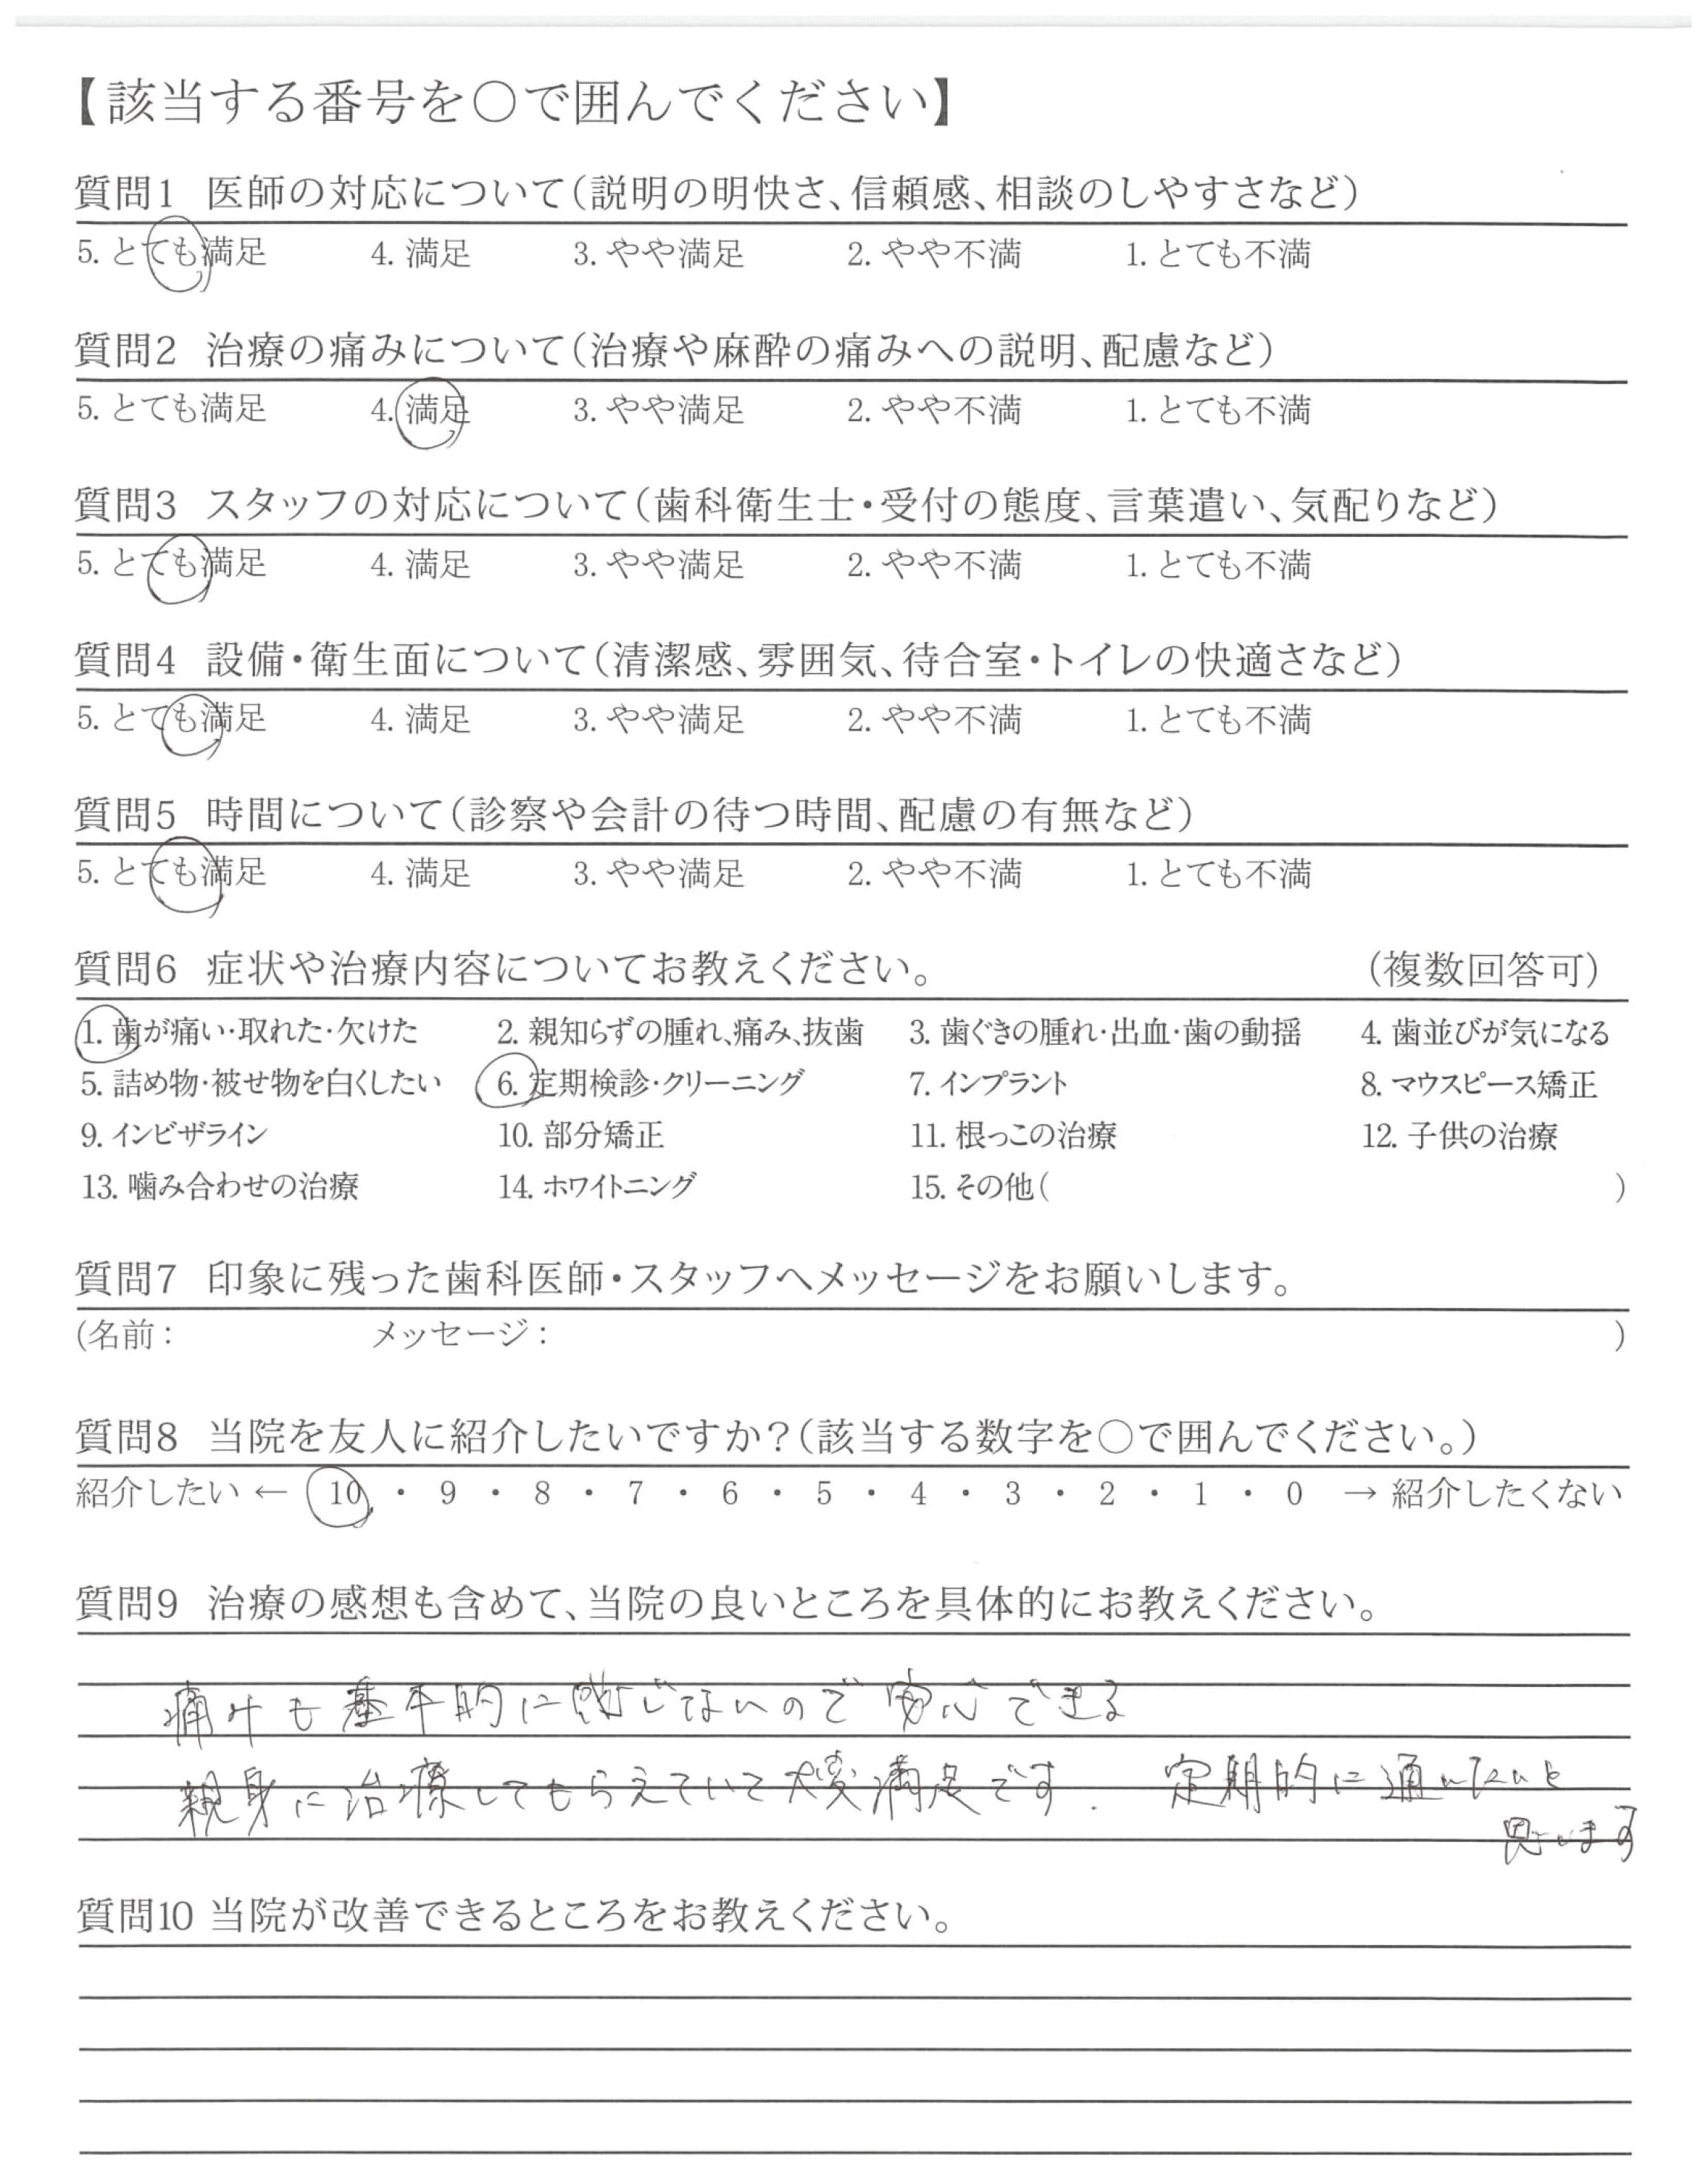 【該当する番号を○で囲んでください】
質問1 医師の対応について（説明の明快さ、信頼感、相談のしやすさなど）
5. とても満足 4. 満足 3. やや満足 2. やや不満 1. とても不満
質問2 治療の痛みについて（治療や麻酔の痛みへの説明、配慮など）
5. とても満足 4. 満足 3. やや満足 2. やや不満 1. とても不満
質問3 スタッフの対応について（歯科衛生士・受付の態度、言葉遣い、気配りなど）
5. とても満足 4. 満足 3. やや満足 2. やや不満 1. とても不満
質問4 設備・衛生面について（清潔感、雰囲気、待合室・トイレの快適さなど）
5. とても満足 4. 満足 3. やや満足 2. やや不満 1. とても不満
質問5 時間について（診察や会計の待つ時間、配慮の有無など）
5. とても満足 4. 満足 3. やや満足 2. やや不満 1. とても不満
質問6 症状や治療内容についてお教えください。 （複数回答可）
1. 歯が痛い・取れた・欠けた 2. 親知らずの腫れ、痛み、抜歯 3. 歯ぐきの腫れ・出血・歯の動揺 4. 歯並びが気になる
5. 詰め物・被せ物を白くしたい 6. 定期検診・クリーニング 7. インプラント 8. マウスピース矯正
9. インビザライン 10. 部分矯正 11. 根っこの治療 12. 子供の治療
13. 噛み合わせの治療 14. ホワイトニング 15. その他（ ）
質問7 印象に残った歯科医師・スタッフへメッセージをお願いします。
(名前： メッセージ： )
質問8 当院を友人に紹介したいですか？（該当する数字を○で囲んでください。）
紹介したい ← 10 ・ 9 ・ 8 ・ 7 ・ 6 ・ 5 ・ 4 ・ 3 ・ 2 ・ 1 ・ 0 → 紹介したくない
質問9 治療の感想も含めて、当院の良いところを具体的にお教えください。
痛みも基本的に感じないので安心できる
親身に治療してもらえていて大変満足です. 定期的に通いたいと
思います
質問10 当院が改善できるところをお教えください。